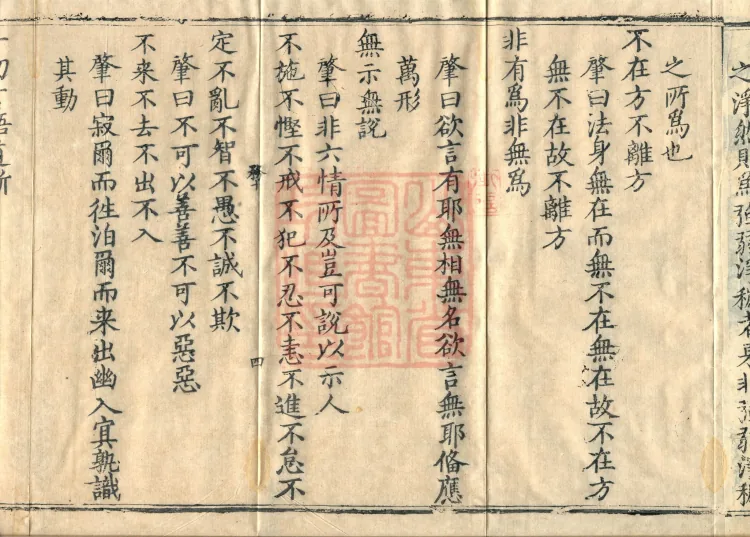 之淨然則為強弱淨穢者果非強弱淨穢
之所為也
不在方不離方
肇曰法身無在而無不在無在故不在方
無不在故不離方
非有為非無為
肇曰欲言有耶無相無名欲言無耶俻應
萬形
無示無說
肇曰非六情所及豈可說以示人
不施不慳不戒不犯不忍不恚不進不怠不
定不亂不智不愚不誠不欺
四
肇曰不可以善善不可以惡惡
不来不去不出不入
肇曰寂爾而徃泊爾而来出幽入㝠孰識
其動